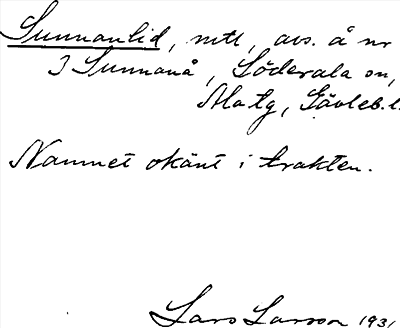 Sunnanlid, mtl, avs. å nr
3 Sunnanå, Söderala sn,
Ala tg, Gävleb. l.
Namnet okänt i trakten.
Lars Larsson 1931